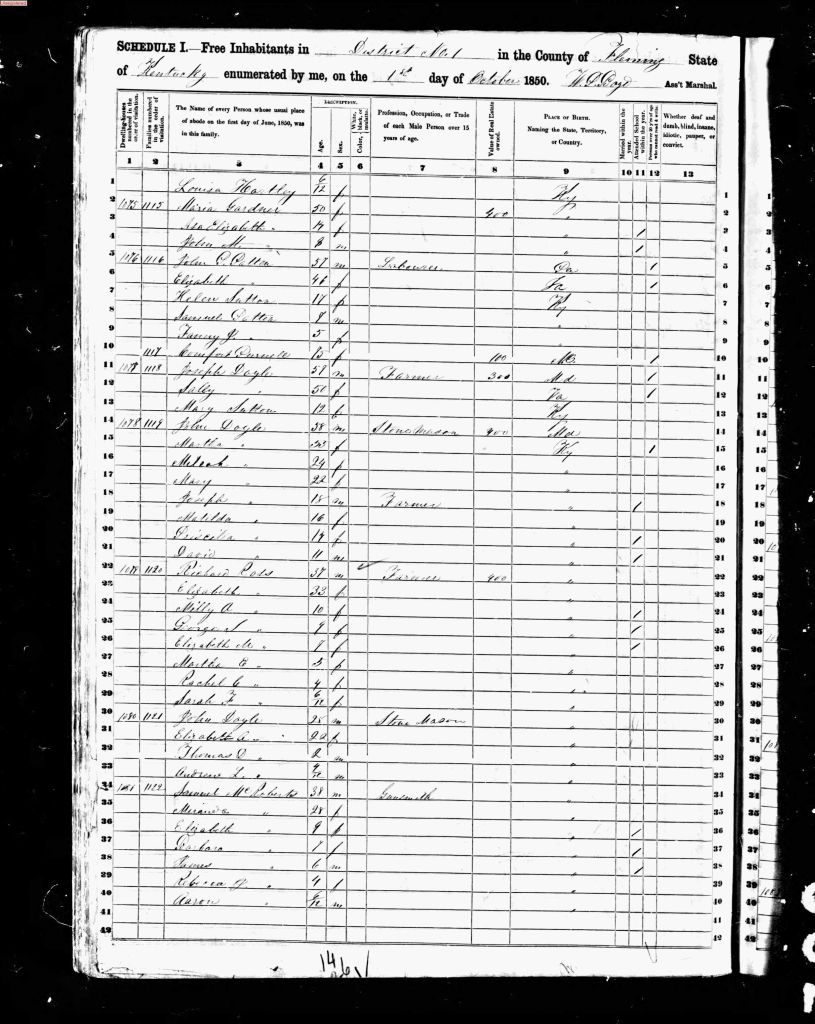 SCHEDULE I.—Free Inhabitants in District No. 1 in the County of Fleming State
of Kentucky enumerated by me, on the 1st day of October 1850. Ass't Marshal.
Dwelling-houses numbered in the order of visitation.
Families numbered in the order of visitation.
The Name of every Person whose usual place of abode on the first day of June, 1850, was in this family.
DESCRIPTION.
Age.
Sex.
Color, White, black, or mulatto.
Profession, Occupation, or Trade of each Male Person over 15 years of age.
Value of Real Estate owned.
PLACE OF BIRTH. Naming the State, Territory, or Country.
Married within the year.
Attended School within the year.
Whether deaf and dumb, blind, insane, idiotic, pauper, or convict.
1 2 3 4 5 6 7 8 9 10 11 12 13
1 Louisa Hartley 6/12 f Ky 1
2 1075 1115 Maria Gardner 50 f 400 " 2
3 Elizabeth " 14 f " / 3
4 John M. " 8 m " / 4
5 1076 1116 John C. 57 m Labourer / 5
6 Elizabeth " 46 f Va / 6
7 Helen Sutton 17 f Ky 7
8 Samuel 9 m " 8
9 Fanny " 5 f " 9
10 1117 Comfort 75 f 100 Md / 10
11 1077 1118 Joseph Doyle 57 m Farmer 300 Md / 11
12 Sally " 50 f Va / 12
13 Mary Sutton 12 f Ky 13
14 1078 1119 John Doyle 58 m Stone Mason 400 Md 14
15 Martha " f Ky / 15
16 " 24 f " 16
17 Mary " 22 f " 17
18 Joseph " 18 m Farmer " / 18
19 Matilda " 16 f " 19
20 Priscilla " 14 f " / 20
21 David " 11 m " / 21
22 1079 1120 Richard 37 m Farmer 400 " 22
23 Elizabeth " 33 f " 23
24 Milly A. " 10 f " / 24
25 " 9 f " / 25
26 Elizabeth M. " 7 f " / 26
27 Martha E " 5 f " 27
28 Rachel C " 4 f " 28
29 Sarah F " 6/12 f " 29
30 1080 1121 John Doyle 28 m Stone Mason " 30
31 Elizabeth A. " 22 f " 31
32 Thomas D " 2 m " 32
33 Andrew L. " m " 33
34 1081 1122 Samuel McRoberts 38 m Gunsmith " 34
35 Miranda " 28 f " 35
36 Elizabeth " 9 f " / 36
37 Barbara " 7 f " / 37
38 James " 6 m " / 38
39 Rebecca " 4 f " 39
40 Aaron " m " 40
41 41
42 42